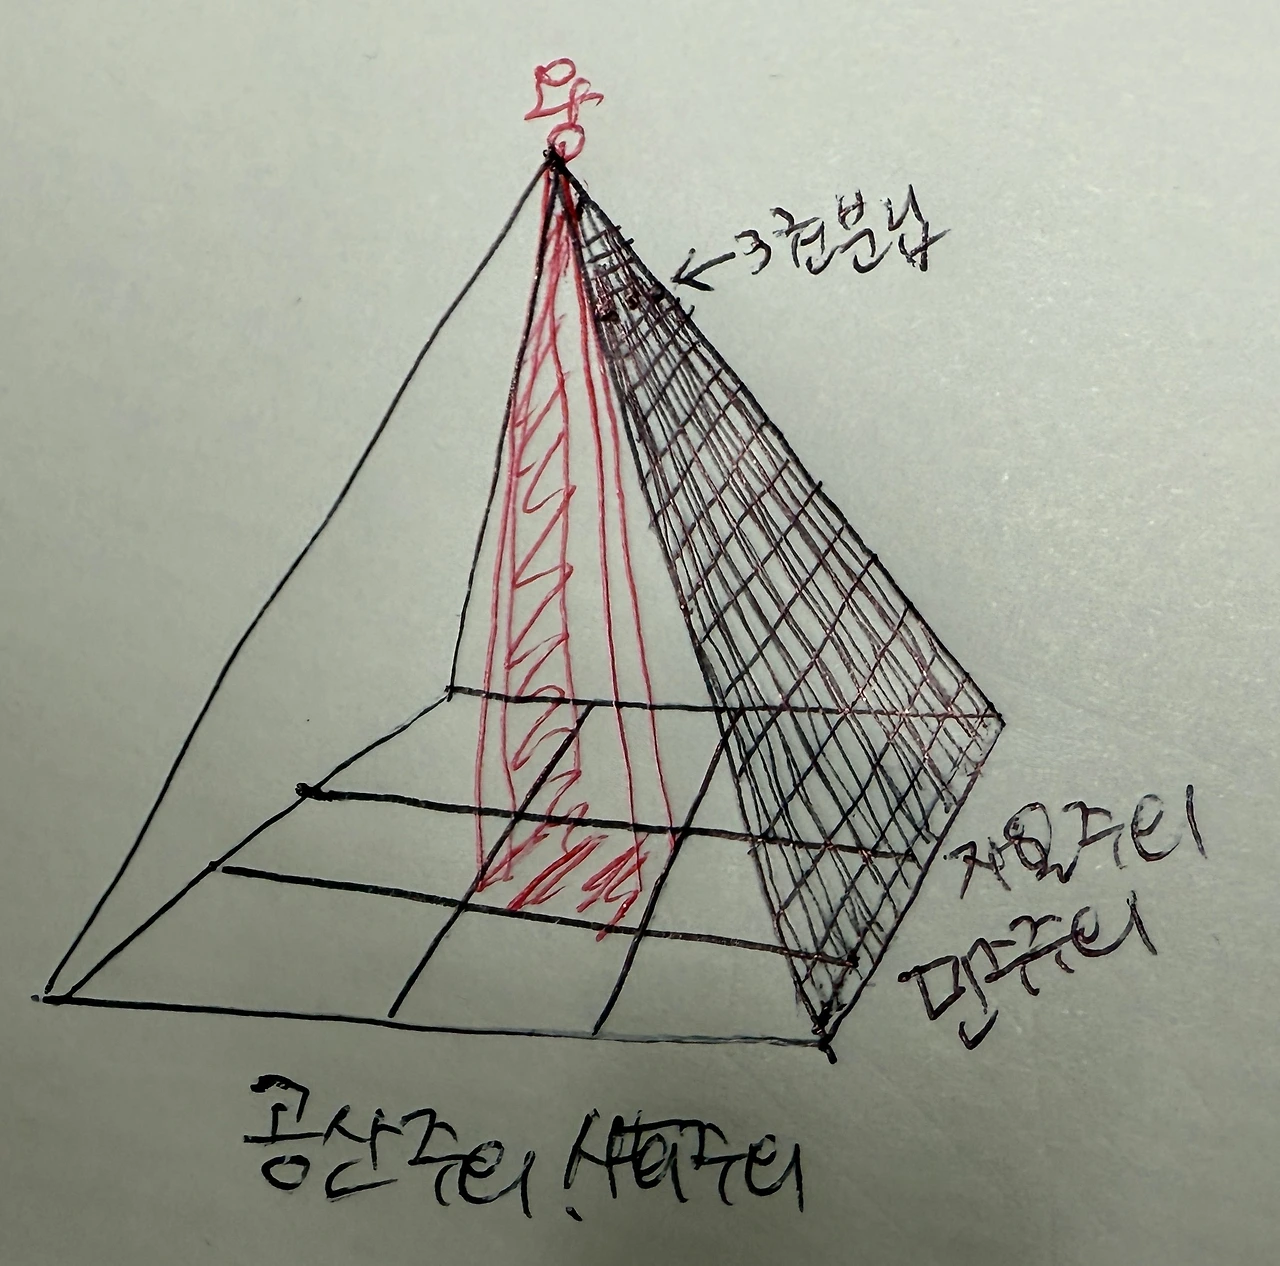 왕
3권분립
자유주의
민주주의
공산주의, 사회주의